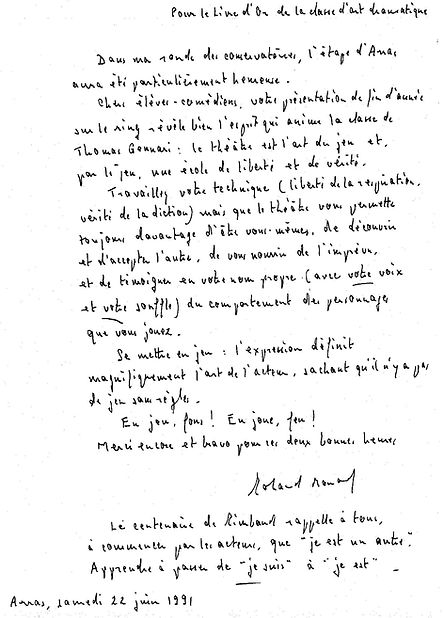 Pour le Livre d'Or de la classe d'art dramatique
Dans ma ronde des conservatoires, l'étape d'Arras
aura été particulièrement heureuse.
Chers élèves-comédiens, votre présentation de fin d'année
sur le ring révèle bien l'esprit qui anime la classe de
Thomas Gennari : le théâtre est l'art du jeu et,
par le jeu, une école de liberté et de vérité.
Travaillez votre technique (liberté de la respiration,
vérité de la diction) mais que le théâtre vous permette
toujours davantage d'être vous-mêmes, de découvrir
et d'accepter l'autre, de vous nourrir de l'imprévu,
et de témoigner en votre nom propre (avec votre voix
et votre souffle) du comportement des personnages
que vous jouez.
Se mettre en jeu : l'expression définit
magnifiquement l'art de l'acteur, sachant qu'il n'y a pas
de jeu sans règles.
En jeu, fous ! En joue, feu !
Merci encore et bravo pour ces deux bonnes heures
Roland
Le centenaire de Rimbaud rappelle à tous,
à commencer par les acteurs, que "je est un autre".
Apprendre à passer de "je suis" à "je est" _
Arras, samedi 22 juin 1991